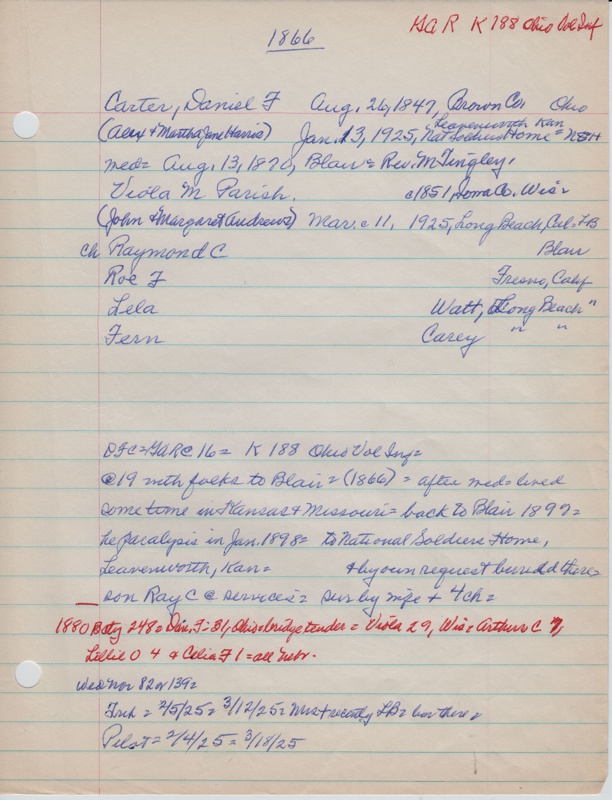 GAR K 188 Ohio Vol Inf
1866
Carter, Daniel F Aug. 26, 1847, Brown Co. Ohio
(Alex & Martha Jane Harris) Jan. 13, 1925, Nat Soldiers Home = NSH
Leavenworth Kan
med= Aug. 13, 1870, Blair = Rev. M Tingley.
Viola M Parish. c1851, Wis=
(John & Margaret Andrews) Mar. c 11, 1925, Long Beach, Cal= LB
ch Raymond C Blair
Roe F Fresno, Calif
Lela Watt, Long Beach "
Fern Carey " "
DFC=GARC 16= K 188 Ohio Vol Inf=
@19 with folks to Blair = (1866) = after med = lived
some time in Kansas & Missouri = back to Blair 1897=
he paralysis in Jan. 1898= to National Soldiers Home,
Leavenworth, Kan= & by own request buried there=
son Ray C @ services = sur by wife & 4 ch=
1880 248= Dan. F=31, Ohio=bridge tender = Viola 29, Wis= Arthur C 7,
Lillie O 4 & Celia F 1=all Nebr.
Wed Nov 82 or 139=
= 2/5/25= 3/12/25= Mrs + recently LB= bur there=
Pilot= 2/4/25= 3/18/25